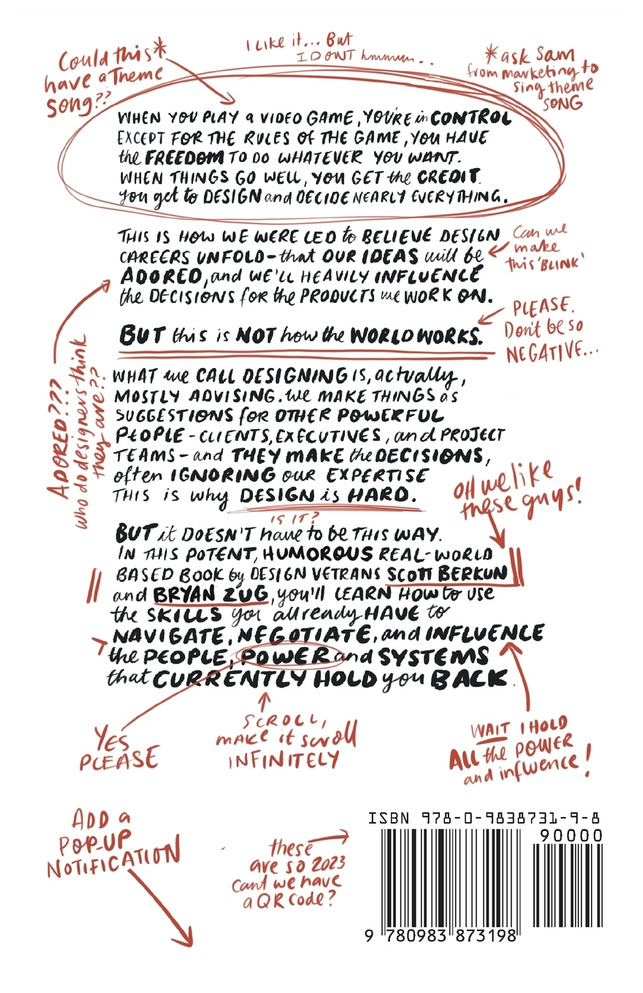 Could this*
have a Theme
Song??
I Like it... But
I DONT hmmmm...
*ask Sam
from marketing to
sing theme
SONG
WHEN YOU PLAY A VIDEO GAME, YOU'RE in CONTROL
EXCEPT FOR THE RULES OF THE GAME, YOU HAVE
the FREEDOM TO DO WHATEVER YOU WANT.
WHEN THINGS GO WELL, YOU GET the CREDIT.
You get to DESIGN and DECIDE NEARLY EVERYTHING.
THIS IS HOW WE WERE LED to BELIEVE DESIGN
CAREERS UNFOLD-that OUR IDEAS will be
ADORED, and WE'LL HEAVILY INFLUENCE
the DECISIONS for the PRODUCTS we WORK ON.
Can we
make
this 'BLINK'
BUT this is NOT how the WORLD WORKS.
PLEASE.
Don't be so
NEGATIVE...
ADORED???
who do designers think
they are??
WHAT we CALL DESIGNING is, actually,
MOSTLY ADVISING. We MAKE THINGS as
SUGGESTIONS for OTHER POWERFUL
PEOPLE - CLIENTS, EXECUTIVES, and PROJECT
TEAMS - and THEY MAKE the DECISIONS,
often IGNORING our EXPERTISE
THIS is why DESIGN is HARD.
IS IT?
OH we like
these guys!
BUT it DOESN'T have to be THIS WAY.
IN THIS POTENT, HUMOROUS REAL-WORLD
BASED BOOK by DESIGN VETRANS SCOTT BERKUN
and BRYAN ZUG, you'll LEARN HOW to use
the SKILLS you allready HAVE to
NAVIGATE, NEGOTIATE, and INFLUENCE
the PEOPLE, POWER and SYSTEMS
that CURRENTLY HOLD you BACK.
YES
PLEASE
SCROLL,
make it scroll
INFINITELY
WAIT I HOLD
ALL the POWER
and influence!
ADD a
POP-UP
NOTIFICATION
these
are so 2023
cant we have
a QR code?
ISBN 978-0-9838731-9-8
90000
9 780983 873198